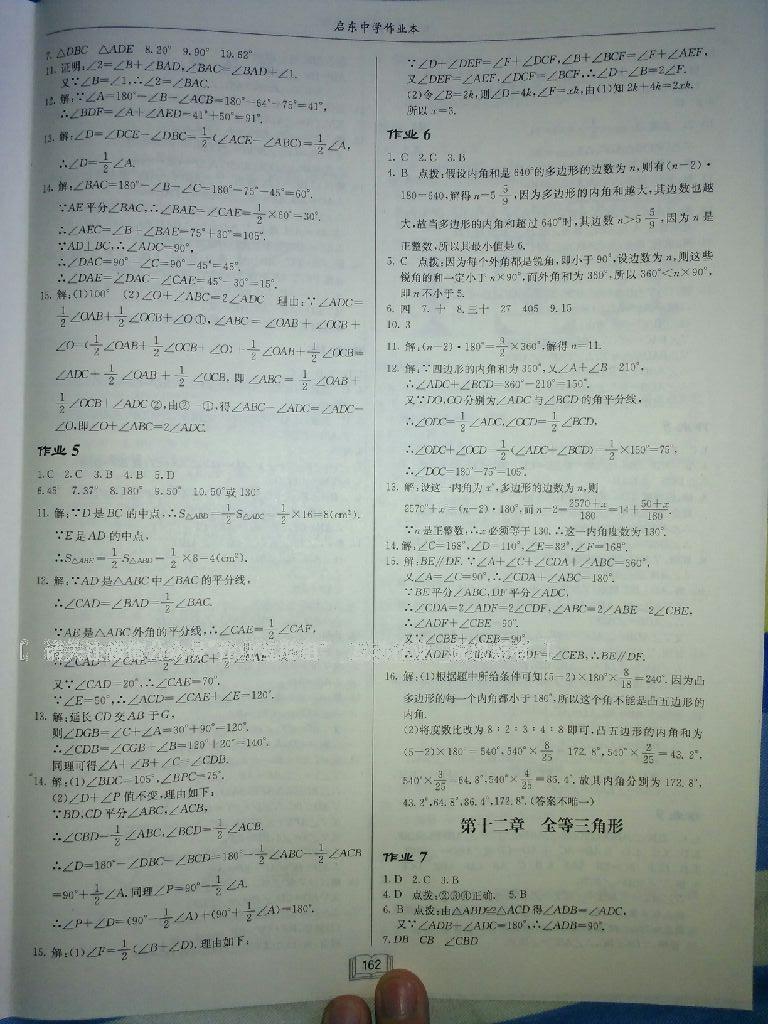 启东中学作业本
7. △DBC △ADE 8. 20° 9. 90° 10. 62°
11. 证明:∠2=∠B+∠BAD,∠BAC=∠BAD+∠1.
又∵∠B=∠1,∴∠2=∠BAC.
12. 解:∵∠A=180°-∠B-∠ACB=180°-64°-75°=41°,
∴∠BDF=∠A+∠AED=41°+50°=91°.
13. 解:∠D=∠DCE-∠DBC=1/2(∠ACE-∠ABC)=1/2∠A,
∴∠D=1/2∠A.
14. 解:∠BAC=180°-∠B-∠C=180°-75°-45°=60°.
∵AE平分∠BAC,∴∠BAE=∠CAE=1/2×60°=30°.
∴∠AEC=∠B+∠BAE=75°+30°=105°.
∵AD⊥BC,∴∠ADC=90°,
∴∠DAC=90°-∠C=90°-45°=45°.
∴∠DAE=∠DAC-∠CAE=45°-30°=15°.
15. 解:(1)100° (2)∠O+∠ABC=2∠ADC 理由:∵∠ADC=
1/2∠OAB+1/2∠OCB+∠O①,∠ABC=∠OAB+∠OCB+
∠O=(1/2∠OAB+1/2∠OCB+∠O)+1/2∠OAB+1/2∠OCB=
∠ADC+1/2∠OAB+1/2∠OCB,即∠ABC=1/2∠OAB+
1/2∠OCB+∠ADC②,由②-①,得∠ABC-∠ADC=∠ADC-
∠O,即∠O+∠ABC=2∠ADC.
作业5
1. C 2. C 3. B 4. B 5. D
6. 45° 7. 37° 8. 180° 9. 50° 10. 50°或130°
11. 解:∵D是BC的中点,∴S△ABD=1/2S△ABC=1/2×16=8(cm²).
∵E是AD的中点,
∴S△ABE=1/2S△ABD=1/2×8=4(cm²).
12. 解:∵AD是△ABC中∠BAC的平分线,
∴∠CAD=∠BAD=1/2∠BAC.
∵AE是△ABC外角的平分线,∴∠CAE=1/2∠CAF,
又∵∠CAD=20°,∴∠CAE=70°.
∵∠E=50°,∴∠ACD=∠CAE+∠E=120°.
13. 解:延长CD交AB于G,
则∠DGB=∠C+∠A=30°+90°=120°.
∴∠CDB=∠CGB+∠B=120°+20°=140°.
同理可得∠A+∠B+∠C=∠CDB.
14. 解:(1)∠BDC=105°,∠BPC=75°.
(2)∠D+∠P值不变,理由如下:
∵BD,CD平分∠ABC,∠ACB,
∴∠CBD=1/2∠ABC,∠BCD=1/2∠ACB.
∴∠D=180°-∠DBC-∠BCD=180°-1/2∠ABC-1/2∠ACB
=90°+1/2∠A. 同理∠P=90°-1/2∠A.
∴∠P+∠D=(90°-1/2∠A)+(90°+1/2∠A)=180°.
15. 解:(1)∠F=1/2(∠B+∠D). 理由如下:
∵∠D+∠DEF=∠F+∠DCF,∠B+∠BCF=∠F+∠AEF,
又∠DEF=∠AEF,∠DCF=∠BCF,∴∠D+∠B=2∠F.
(2)令∠B=2k,则∠D=4k,∠F=xk,由(1)知2k+4k=2xk.
所以x=3.
作业6
1. C 2. C 3. B
4. B 点拨:假设内角和是640°的多边形的边数为n,则有(n-2)·
180=640,解得n=5 5/9,因为多边形的内角和越大,其边数也越
大,故当多边形的内角和超过640°时,其边数n>5 5/9,因为n是
正整数,所以其最小值是6.
5. C 点拨:因为每个外角都是锐角,即小于90°,设边数为n,则这些
锐角的和一定小于n×90°,而外角和为360°,所以360°<n×90°,
即n不小于5.
6. 四 7. 十 8. 三十 27 405 9. 15
10. 3
11. 解:(n-2)·180°=9/2×360°.解得n=11.
12. 解:∵四边形的内角和为360°,又∠A+∠B=210°,
∴∠ADC+∠BCD=360°-210°=150°.
又∵DO,CO分别为∠ADC与∠BCD的角平分线,
∴∠ODC=1/2∠ADC,∠OCD=1/2∠BCD,
∴∠ODC+∠OCD=1/2(∠ADC+∠BCD)=1/2×150°=75°,
∴∠DOC=180°-75°=105°.
13. 解:设这一内角为x°,多边形的边数为n,则
2570°+x=(n-2)·180°,而n-2=(2570+x)/180=14+(50+x)/180.
∵n是正整数,∴x必须等于130.∴这一内角度数为130°.
14. 解:∠C=168°,∠D=110°,∠E=82°,∠F=168°.
15. 解:BE∥DF.∵∠A+∠C+∠CDA+∠ABC=360°,
又∠A=∠C=90°,∴∠CDA+∠ABC=180°.
∵BE平分∠ABC,DF平分∠ADC,
∴∠CDA=2∠ADF=2∠CDF,∠ABC=2∠ABE=2∠CBE,
∴∠ADF+∠CBE=90°.
又∵∠CBE+∠CEB=90°,
16. 解:(1)根据题中所给条件可知(5-2)×180°×8/18=240°. 因为凸
多边形的每一个内角都小于180°,所以这个角不能是凸五边形的
内角.
(2)将度数比改为8:2:3:4:8即可,凸五边形的内角和为
(5-2)×180°=540°,540°×8/25=172.8°,540°×2/25=43.2°,
540°×3/25=64.8°,540°×4/25=86.4°. 故其内角分别为172.8°,
43.2°,64.8°,86.4°,172.8°.(答案不唯一)
第十二章 全等三角形
作业7
1. D 2. C 3. B
4. D 点拨:②③④正确. 5. B
6. B 点拨:由△ABD≌△ACD得∠ADB=∠ADC,
又∵∠ADB+∠ADC=180°,∴∠ADB=90°.
7. DB CB ∠CBD
162